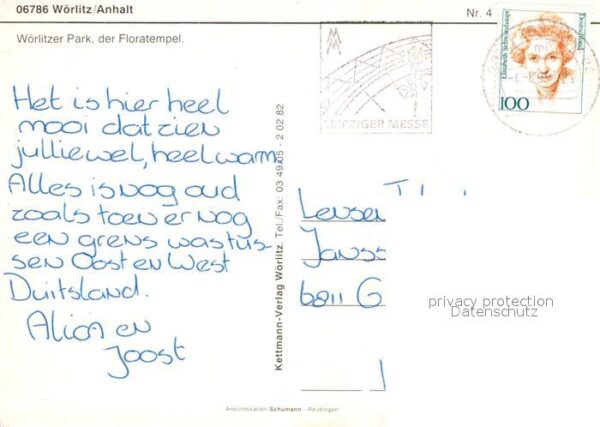 06786 Wörlitz/Anhalt
Nr. 4
Wörlitzer Park, der Floratempel.
Het is hier heel
mooi dat zien
jullie wel, heel warm
Alles is nog oud
zoals toen er nog
een grens was tus-
sen Oost en West
Duitsland.
Alida en
Joost
Kettmann-Verlag Wörlitz, Tel./Fax: 03 49 05 - 2 02 82
LEIPZIGER MESSE
Elisabeth Schwarzhaupt
Deutschland
100
Janss
6811 G
privacy protection
Datenschutz
Ansichtskarten Schumann · Reutlingen